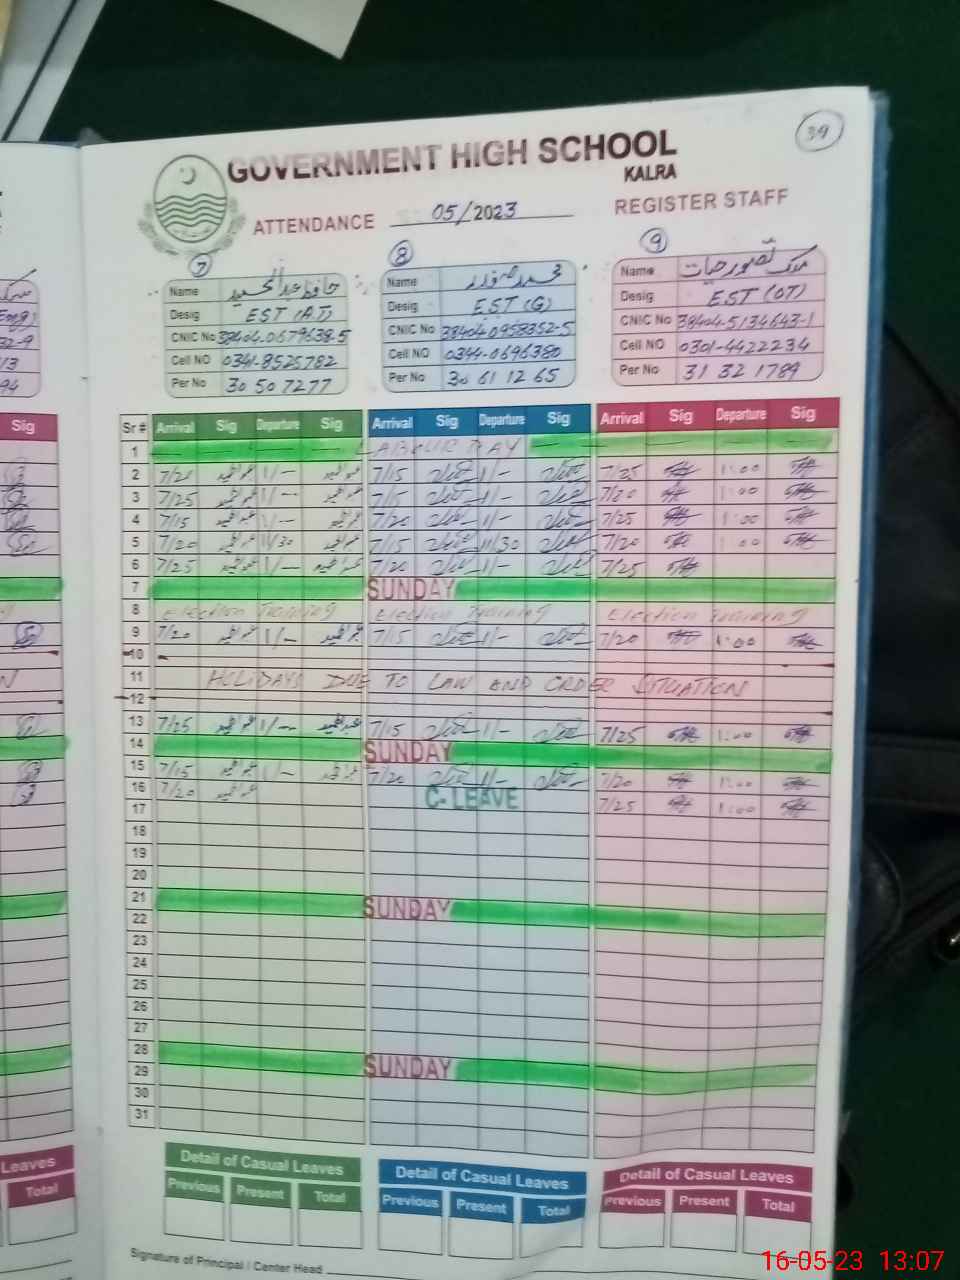 39
GOVERNMENT HIGH SCHOOL
KALRA
ATTENDANCE 05/2023 REGISTER STAFF
7 8 9
Name حافظ عبدالحمید Name محمد صفدر Name ملک تصور حیات
Desig EST (A.T) Desig EST (G) Desig EST (OT)
CNIC No 38404.0679638.5 CNIC No 38404.0958352-5 CNIC No 38404-5134643-1
Cell NO 0341-8525782 Cell NO 0344-0696380 Cell NO 0301-4422234
Per No 30 50 7277 Per No 30 61 12 65 Per No 31 32 1789
Sig Sr # Arrival Sig Departure Sig Arrival Sig Departure Sig Arrival Sig Departure Sig
1 LABOUR DAY
2 7/25 1/- 7/15 1/- 7/25 1:00
3 7/25 1/- 7/15 1/- 7/20 1:00
4 7/15 1/- 7/20 1/- 7/25 1:00
5 7/20 11/30 7/15 11/30 7/20
6 7/25 1/- 7/20 1/- 7/25
7 SUNDAY
8 Election Training Election Training Election Training
9 7/20 1/- 7/15 1/- 7/20 1:00
10
11 HOLIDAYS DUE TO LAW AND ORDER SITUATION
12
13 7/25 1/- 7/15 1/- 7/25 1:00
14 SUNDAY
15 7/15 1/- 7/20 1/- 7/20 1:00
16 7/20 C-LEAVE 7/25 1:00
17
18
19
20
21 SUNDAY
22
23
24
25
26
27
28 SUNDAY
29
30
31
Leaves Detail of Casual Leaves Detail of Casual Leaves Detail of Casual Leaves
Total Previous Present Total Previous Present Total Previous Present Total
Signature of Principal / Center Head
16-05-23 13:07